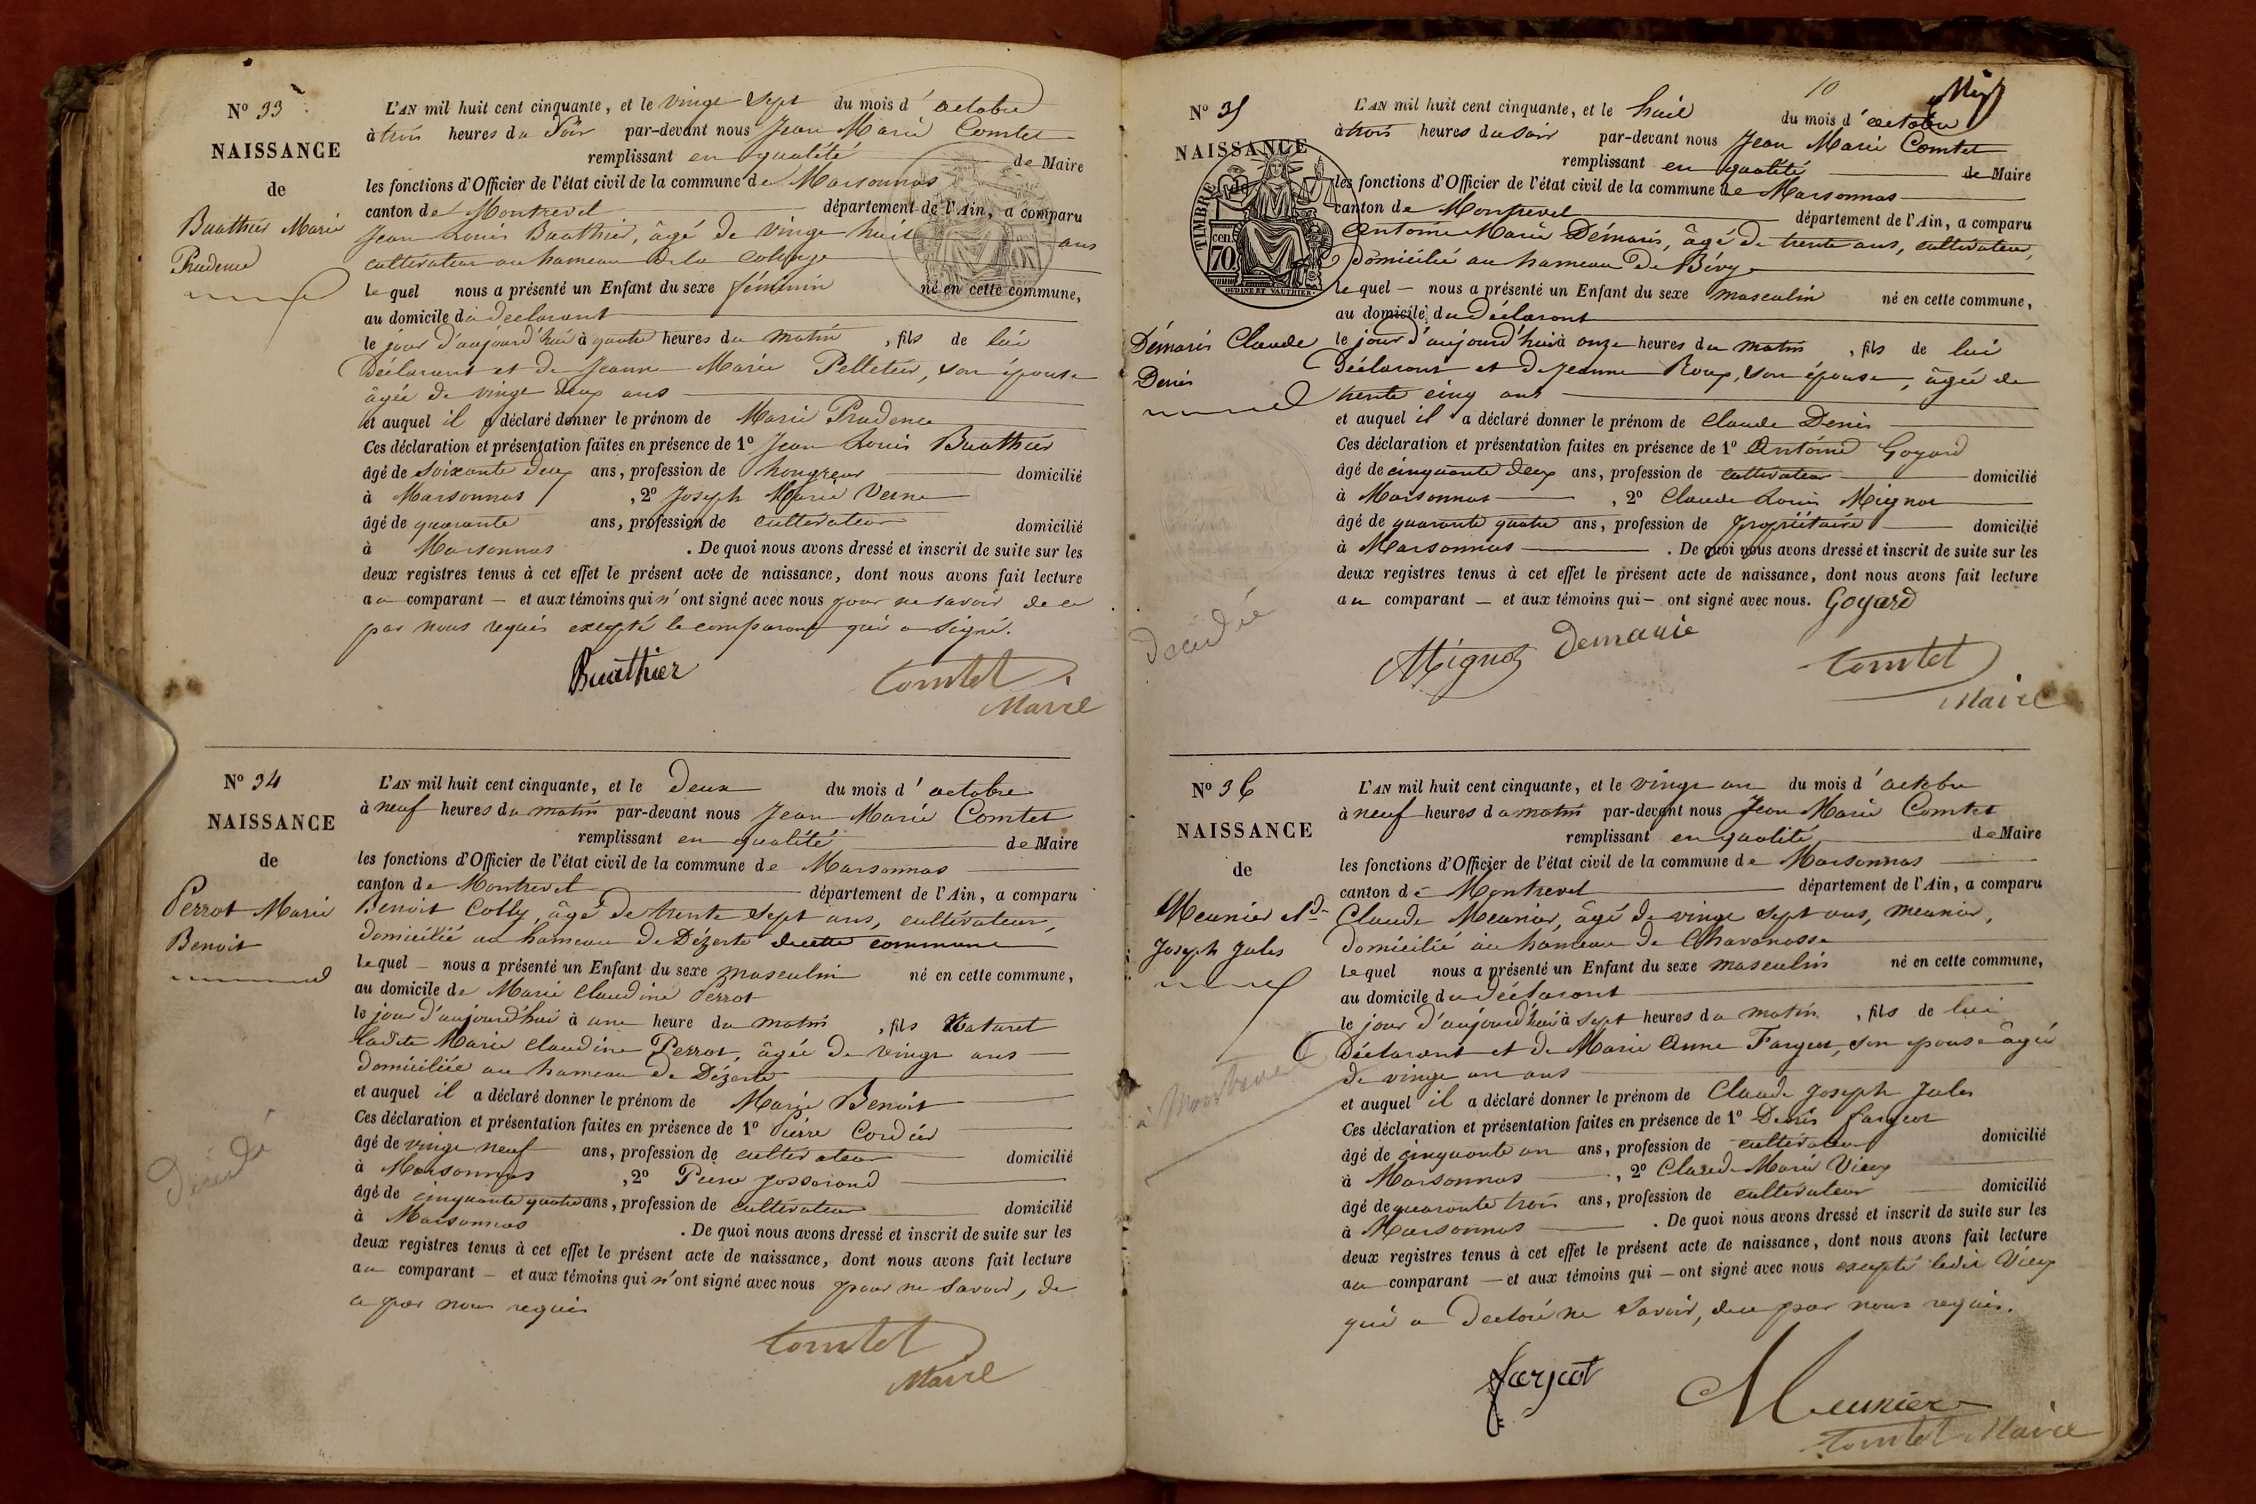 N° 33
NAISSANCE
de
Buathier Marie
Prudence
L'AN mil huit cent cinquante, et le vingt sept du mois d'octobre
à trois heures du soir par-devant nous Jean Marie Comtet
remplissant en qualité de Maire
les fonctions d'Officier de l'état civil de la commune de Marsonnas
canton de Montrevel département de l'Ain, a comparu
Jean Louis Buathier, âgé de vingt huit ans
cultivateur au hameau de la
lequel nous a présenté un Enfant du sexe féminin né en cette commune,
au domicile du déclarant
le jour d'aujourd'hui à quatre heures du matin, fils de lui
Déclarant et de Jeanne Marie Pelletier, son épouse
âgée de vingt deux ans
et auquel il a déclaré donner le prénom de Marie Prudence
Ces déclaration et présentation faites en présence de 1° Jean Louis Buathier
âgé de soixante deux ans, profession de hongreur domicilié
à Marsonnas, 2° Joseph Marie Verne
âgé de quarante ans, profession de cultivateur domicilié
à Marsonnas. De quoi nous avons dressé et inscrit de suite sur les
deux registres tenus à cet effet le présent acte de naissance, dont nous avons fait lecture
au comparant — et aux témoins qui n'ont signé avec nous pour ne savoir de ce
par nous requis excepté le comparant qui a signé.
Buathier
Comtet
Maire
N° 34
NAISSANCE
de
Perrot Marie
Benoit
Décédé
L'AN mil huit cent cinquante, et le Deux du mois d'octobre
à neuf heures du matin par-devant nous Jean Marie Comtet
remplissant en qualité de Maire
les fonctions d'Officier de l'état civil de la commune de Marsonnas
canton de Montrevel département de l'Ain, a comparu
Benoit Colly, âgé de trente sept ans, cultivateur,
domicilié au hameau de Dézerte de cette commune
lequel — nous a présenté un Enfant du sexe masculin né en cette commune,
au domicile de Marie Claudine Perrot
le jour d'aujourd'hui à une heure du matin, fils Naturel
ladite Marie Claudine Perrot, âgée de vingt ans
domiciliée au hameau de Dézerte
et auquel il a déclaré donner le prénom de Marie Benoit
Ces déclaration et présentation faites en présence de 1° Pierre Cordier
âgé de vingt neuf ans, profession de cultivateur domicilié
à Marsonnas, 2° Pierre Josserand
âgé de cinquante quatre ans, profession de cultivateur domicilié
à Marsonnas. De quoi nous avons dressé et inscrit de suite sur les
deux registres tenus à cet effet le présent acte de naissance, dont nous avons fait lecture
au comparant — et aux témoins qui n'ont signé avec nous pour ne savoir, de
ce par nous requis
Comtet
Maire
10
N° 35
NAISSANCE
de
TIMBRE
cen. 70
OUDINÉ ET VAUTHIER
Démaris Claude
Denis
décédé
L'AN mil huit cent cinquante, et le huit du mois d'octobre
à trois heures du soir par-devant nous Jean Marie Comtet
remplissant en qualité de Maire
les fonctions d'Officier de l'état civil de la commune de Marsonnas
canton de Montrevel département de l'Ain, a comparu
Antoine Marie Démaris, âgé de trente ans, cultivateur,
domicilié au hameau de Bévy
lequel — nous a présenté un Enfant du sexe masculin né en cette commune,
au domicile du déclarant
le jour d'aujourd'hui à onze heures du matin, fils de lui
Déclarant et de Jeanne Roux, son épouse, âgée de
trente cinq ans
et auquel il a déclaré donner le prénom de Claude Denis
Ces déclaration et présentation faites en présence de 1° Antoine Goyard
âgé de cinquante deux ans, profession de cultivateur domicilié
à Marsonnas, 2° Claude Louis Mignot
âgé de quarante quatre ans, profession de propriétaire domicilié
à Marsonnas. De quoi nous avons dressé et inscrit de suite sur les
deux registres tenus à cet effet le présent acte de naissance, dont nous avons fait lecture
au comparant — et aux témoins qui — ont signé avec nous. Goyard
Mignot Demarie
Comtet
Maire
N° 36
NAISSANCE
de
Meunier Cde
Joseph Jules
à Montrevel
L'AN mil huit cent cinquante, et le vingt un du mois d'octobre
à neuf heures du matin par-devant nous Jean Marie Comtet
remplissant en qualité de Maire
les fonctions d'Officier de l'état civil de la commune de Marsonnas
canton de Montrevel département de l'Ain, a comparu
Claude Meunier, âgé de vingt sept ans, meunier,
domicilié au hameau de Chavanosse
lequel nous a présenté un Enfant du sexe masculin né en cette commune,
au domicile du déclarant
le jour d'aujourd'hui à sept heures du matin, fils de lui
Déclarant et de Marie Anne Fargeot, son épouse âgée
de vingt un ans
et auquel il a déclaré donner le prénom de Claude Joseph Jules
Ces déclaration et présentation faites en présence de 1° Denis Fargeot
âgé de cinquante un ans, profession de cultivateur domicilié
à Marsonnas, 2° Claude Marie Vieux
âgé de quarante trois ans, profession de cultivateur domicilié
à Marsonnas. De quoi nous avons dressé et inscrit de suite sur les
deux registres tenus à cet effet le présent acte de naissance, dont nous avons fait lecture
au comparant — et aux témoins qui — ont signé avec nous excepté ledit Vieux
qui a déclaré ne savoir, de ce par nous requis.
Farjeot
Meunier
Comtet Maire